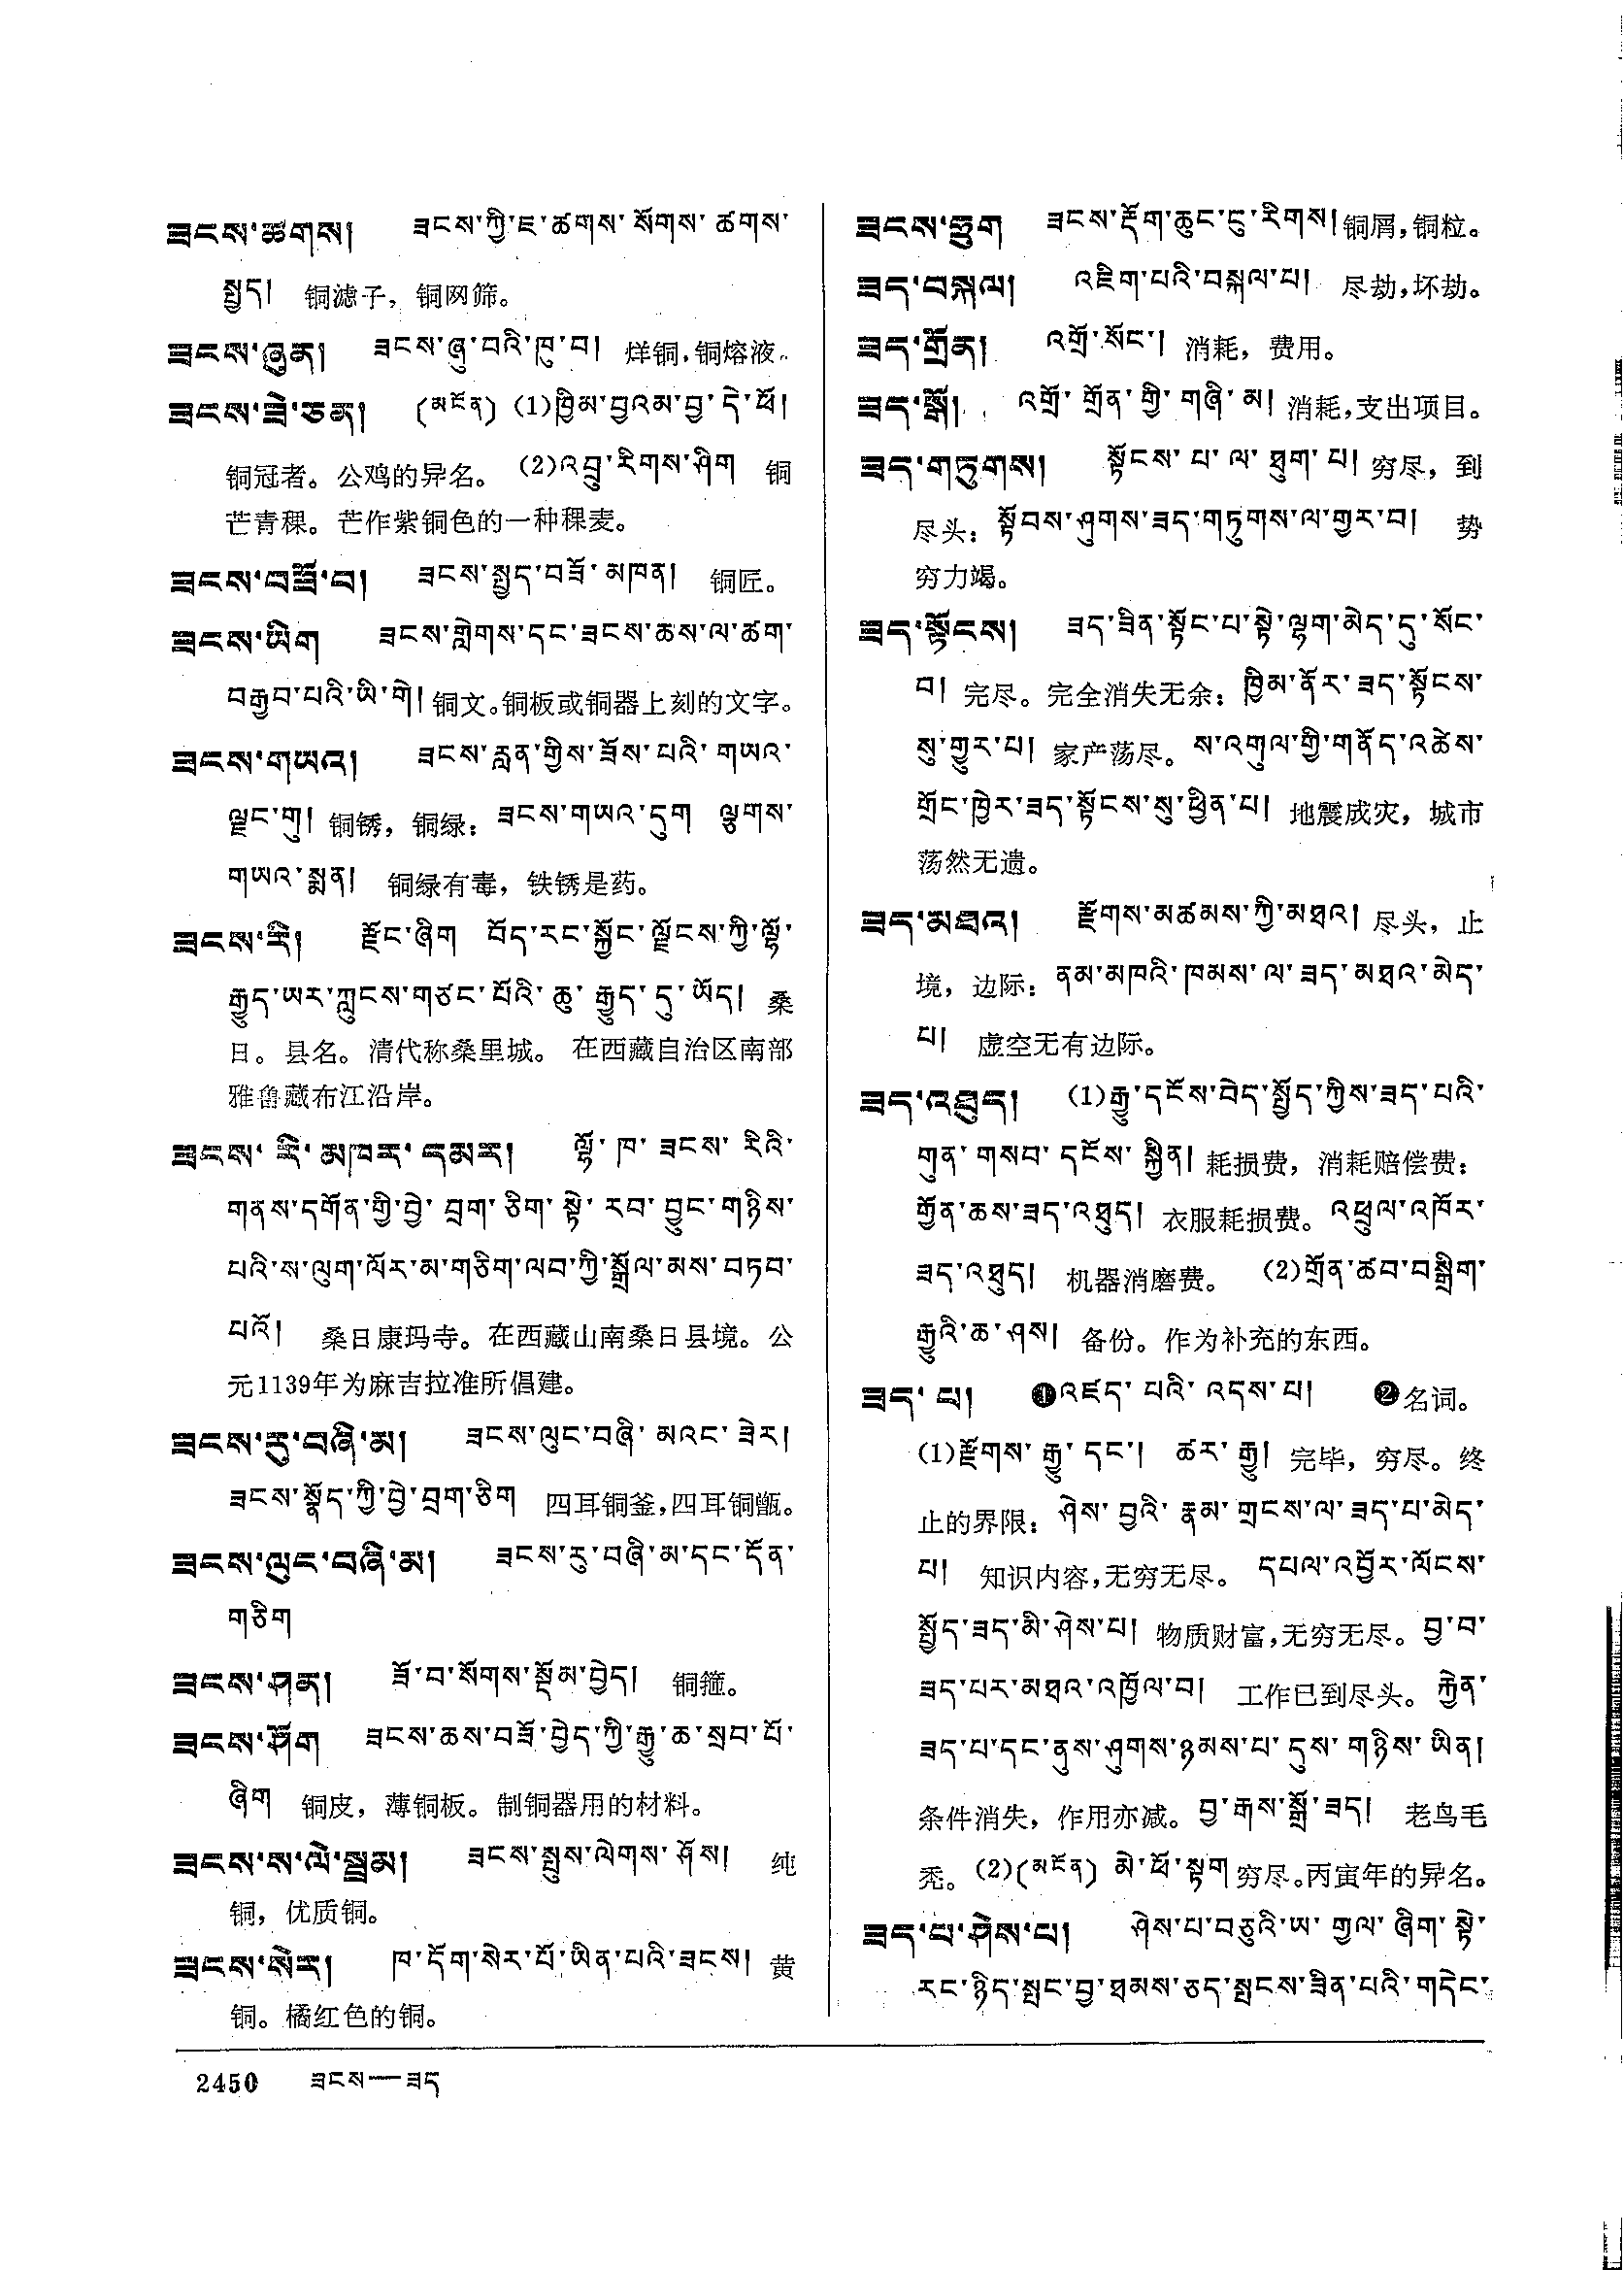 ཟངས་ཚགས། ཟངས་ཀྱི་ཇ་ཚགས་སོགས་ཚགས་
སྤྱད། 铜滤子，铜网筛。
ཟངས་ཞུན། ཟངས་ཞུ་བའི་ཁུ་བ། 烊铜，铜熔液。
ཟངས་ཟེ་ཅན། (མངོན) (1)ཁྱིམ་བྱའམ་བྱ་དེ་ཕོ།
铜冠者。公鸡的异名。(2)འབྲུ་རིགས་ཤིག 铜
芒青稞。芒作紫铜色的一种稞麦。
ཟངས་བཟོ་བ། ཟངས་སྤྱད་བཟོ་མཁན། 铜匠。
ཟངས་ཡིག ཟངས་གླེགས་དང་ཟངས་ཆས་ལ་ཚག་
བརྒྱབ་པའི་ཡི་གེ། 铜文。铜板或铜器上刻的文字。
ཟངས་གཡའ། ཟངས་རླན་གྱིས་ཟོས་པའི་གཡའ་
ལྗང་གུ། 铜锈，铜绿：ཟངས་གཡའ་དུག ལྕགས་
གཡའ་སྨན། 铜绿有毒，铁锈是药。
ཟངས་རི། རྫོང་ཞིག བོད་རང་སྐྱོང་ལྗོངས་ཀྱི་ལྷོ་
རྒྱུད་ཡར་ཀླུངས་གཙང་པོའི་ཆུ་རྒྱུད་དུ་ཡོད། 桑
日。县名。清代称桑里城。在西藏自治区南部
雅鲁藏布江沿岸。
ཟངས་རི་མཁར་དམར། ལྷོ་ཁ་ཟངས་རིའི་
གནས་དགོན་གྱི་བྱེ་བྲག་ཅིག་སྟེ་རབ་བྱུང་གཉིས་
པའི་ས་ལུག་ལོར་མ་གཅིག་ལབ་ཀྱི་སྒྲོལ་མས་བཏབ་
པའོ། 桑日康玛寺。在西藏山南桑日县境。公
元1139年为麻吉拉准所倡建。
ཟངས་རུ་བཞི་མ། ཟངས་ལུང་བཞི་མའང་ཟེར།
ཟངས་སྣོད་ཀྱི་བྱེ་བྲག་ཅིག 四耳铜釜，四耳铜甑。
ཟངས་ལུང་བཞི་མ། ཟངས་རུ་བཞི་མ་དང་དོན་
གཅིག
ཟངས་ཤན། ཟོ་བ་སོགས་སྡོམ་བྱེད། 铜箍。
ཟངས་ཤོག ཟངས་ཆས་བཟོ་བྱེད་ཀྱི་རྒྱུ་ཆ་སྲབ་པོ་
ཞིག 铜皮，薄铜板。制铜器用的材料。
ཟངས་ས་ལེ་སྦྲམ། ཟངས་སྤུས་ལེགས་ཤོས། 纯
铜，优质铜。
ཟངས་སེར། ཁ་དོག་སེར་པོ་ཡིན་པའི་ཟངས། 黄
铜。橘红色的铜。
ཟངས་ཧྲུག ཟངས་རྡོག་ཆུང་ངུ་རིགས། 铜屑，铜粒。
ཟད་བསྐལ། འཇིག་པའི་བསྐལ་པ། 尽劫，坏劫。
ཟད་གྲོན། འགྲོ་སོང་། 消耗，费用。
ཟད་སྒོ། འགྲོ་གྲོན་གྱི་གཞི་མ། 消耗，支出项目。
ཟད་གཏུགས། སྟོངས་པ་ལ་ཐུག་པ། 穷尽，到
尽头：སྟོབས་ཤུགས་ཟད་གཏུགས་ལ་གྱར་བ། 势
穷力竭。
ཟད་སྟོངས། ཟད་ཟིན་སྟོང་པ་སྟེ་ལྷག་མེད་དུ་སོང་
བ། 完尽。完全消失无余：ཁྱིམ་ནོར་ཟད་སྟོངས་
སུ་གྱུར་པ། 家产荡尽。ས་འགུལ་གྱི་གནོད་འཚེས་
གྲོང་ཁྱེར་ཟད་སྟོངས་སུ་ཕྱིན་པ། 地震成灾，城市
荡然无遗。
ཟད་མཐའ། རྫོགས་མཚམས་ཀྱི་མཐའ། 尽头，止
境，边际：ནམ་མཁའི་ཁམས་ལ་ཟད་མཐའ་མེད་
པ། 虚空无有边际。
ཟད་འཐུད། (1)རྒྱུ་དངོས་བེད་སྤྱོད་ཀྱིས་ཟད་པའི་
གུན་གསབ་དངོས་སྐྱིན། 耗损费，消耗赔偿费：
གྱོན་ཆས་ཟད་འཐུད། 衣服耗损费。འཕྲུལ་འཁོར་
ཟད་འཐུད། 机器消磨费。 (2)གྲོན་ཚབ་བསྒྲིག་
རྒྱུའི་ཆ་ཤས། 备份。作为补充的东西。
ཟད་པ། ❶འཛད་པའི་འདས་པ། ❷名词。
(1)རྫོགས་རྒྱུ་དང་། ཚར་རྒྱུ། 完毕，穷尽。终
止的界限：ཤེས་བྱའི་རྣམ་གྲངས་ལ་ཟད་པ་མེད་
པ། 知识内容，无穷无尽。དཔལ་འབྱོར་ལོངས་
སྤྱོད་ཟད་མི་ཤེས་པ། 物质财富，无穷无尽。བྱ་བ་
ཟད་པར་མཐའ་འཁྱོལ་བ། 工作已到尽头。རྐྱེན་
ཟད་པ་དང་ནུས་ཤུགས་ཉམས་པ་དུས་གཉིས་ཡིན།
条件消失，作用亦减。བྱ་རྒས་སྒྲོ་ཟད། 老鸟毛
秃。(2)(མངོན) མེ་ཕོ་སྟག 穷尽。丙寅年的异名。
ཟད་པ་ཤེས་པ། ཤེས་པ་བཅུའི་ཡ་གྱལ་ཞིག་སྟེ་
རང་ཉིད་སྤང་བྱ་ཐམས་ཅད་སྤངས་ཟིན་པའི་གདེང་
2450 ཟངས—ཟད